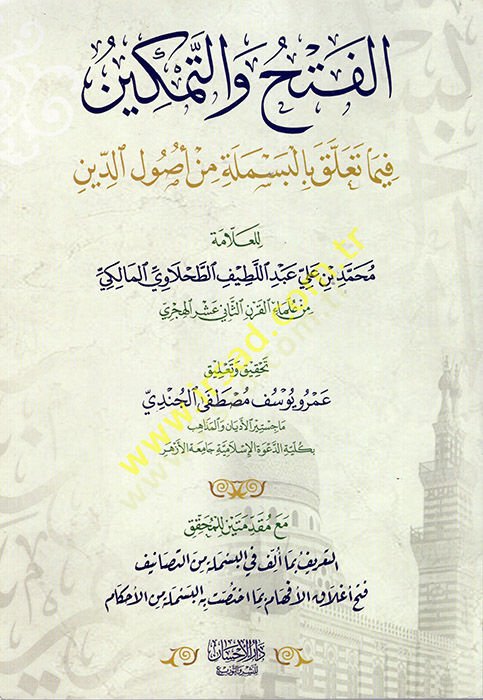 الفَتْحُ وَالتَّمْكِينُ
فِيمَا تَعَلَّقَ بِالْبَسْمَلَةِ مِنْ أُصُولِ الدِّينِ
لِلعَلَّامَة
مُحَمَّد بْنِ عَلِي عَبْدِ اللَّطِيفِ الطَّحْلَاوِيِّ المَالِكِيِّ
مِنْ عُلَمَاءِ القَرْنِ الثَّانِي عَشَرَ الهِجْرِيِّ
تَحْقِيق وَتَعْلِيق
عَمْرو يُوسُف مُصْطَفَى الجُنْدِيّ
مَاجِسْتِير الأَدْيَان وَالمَذَاهِب
بِكُلِّيَّةِ الدَّعْوَةِ الإِسْلَامِيَّةِ جَامِعَةِ الأَزْهَر
مَعَ مُقَدِّمَتَيْنِ لِلْمُحَقِّقِ
التَّعْرِيفُ بِمَا أُلِّفَ فِي البَسْمَلَةِ مِنَ التَّصَانِيفِ
فَتْحُ أَغْلَاقِ الأَفْهَامِ بِمَا اخْتُصَّتْ بِهِ البَسْمَلَةُ مِنَ الأَحْكَامِ
دار الإحسان
للنشر والتوزيع
www.irsad.com.tr